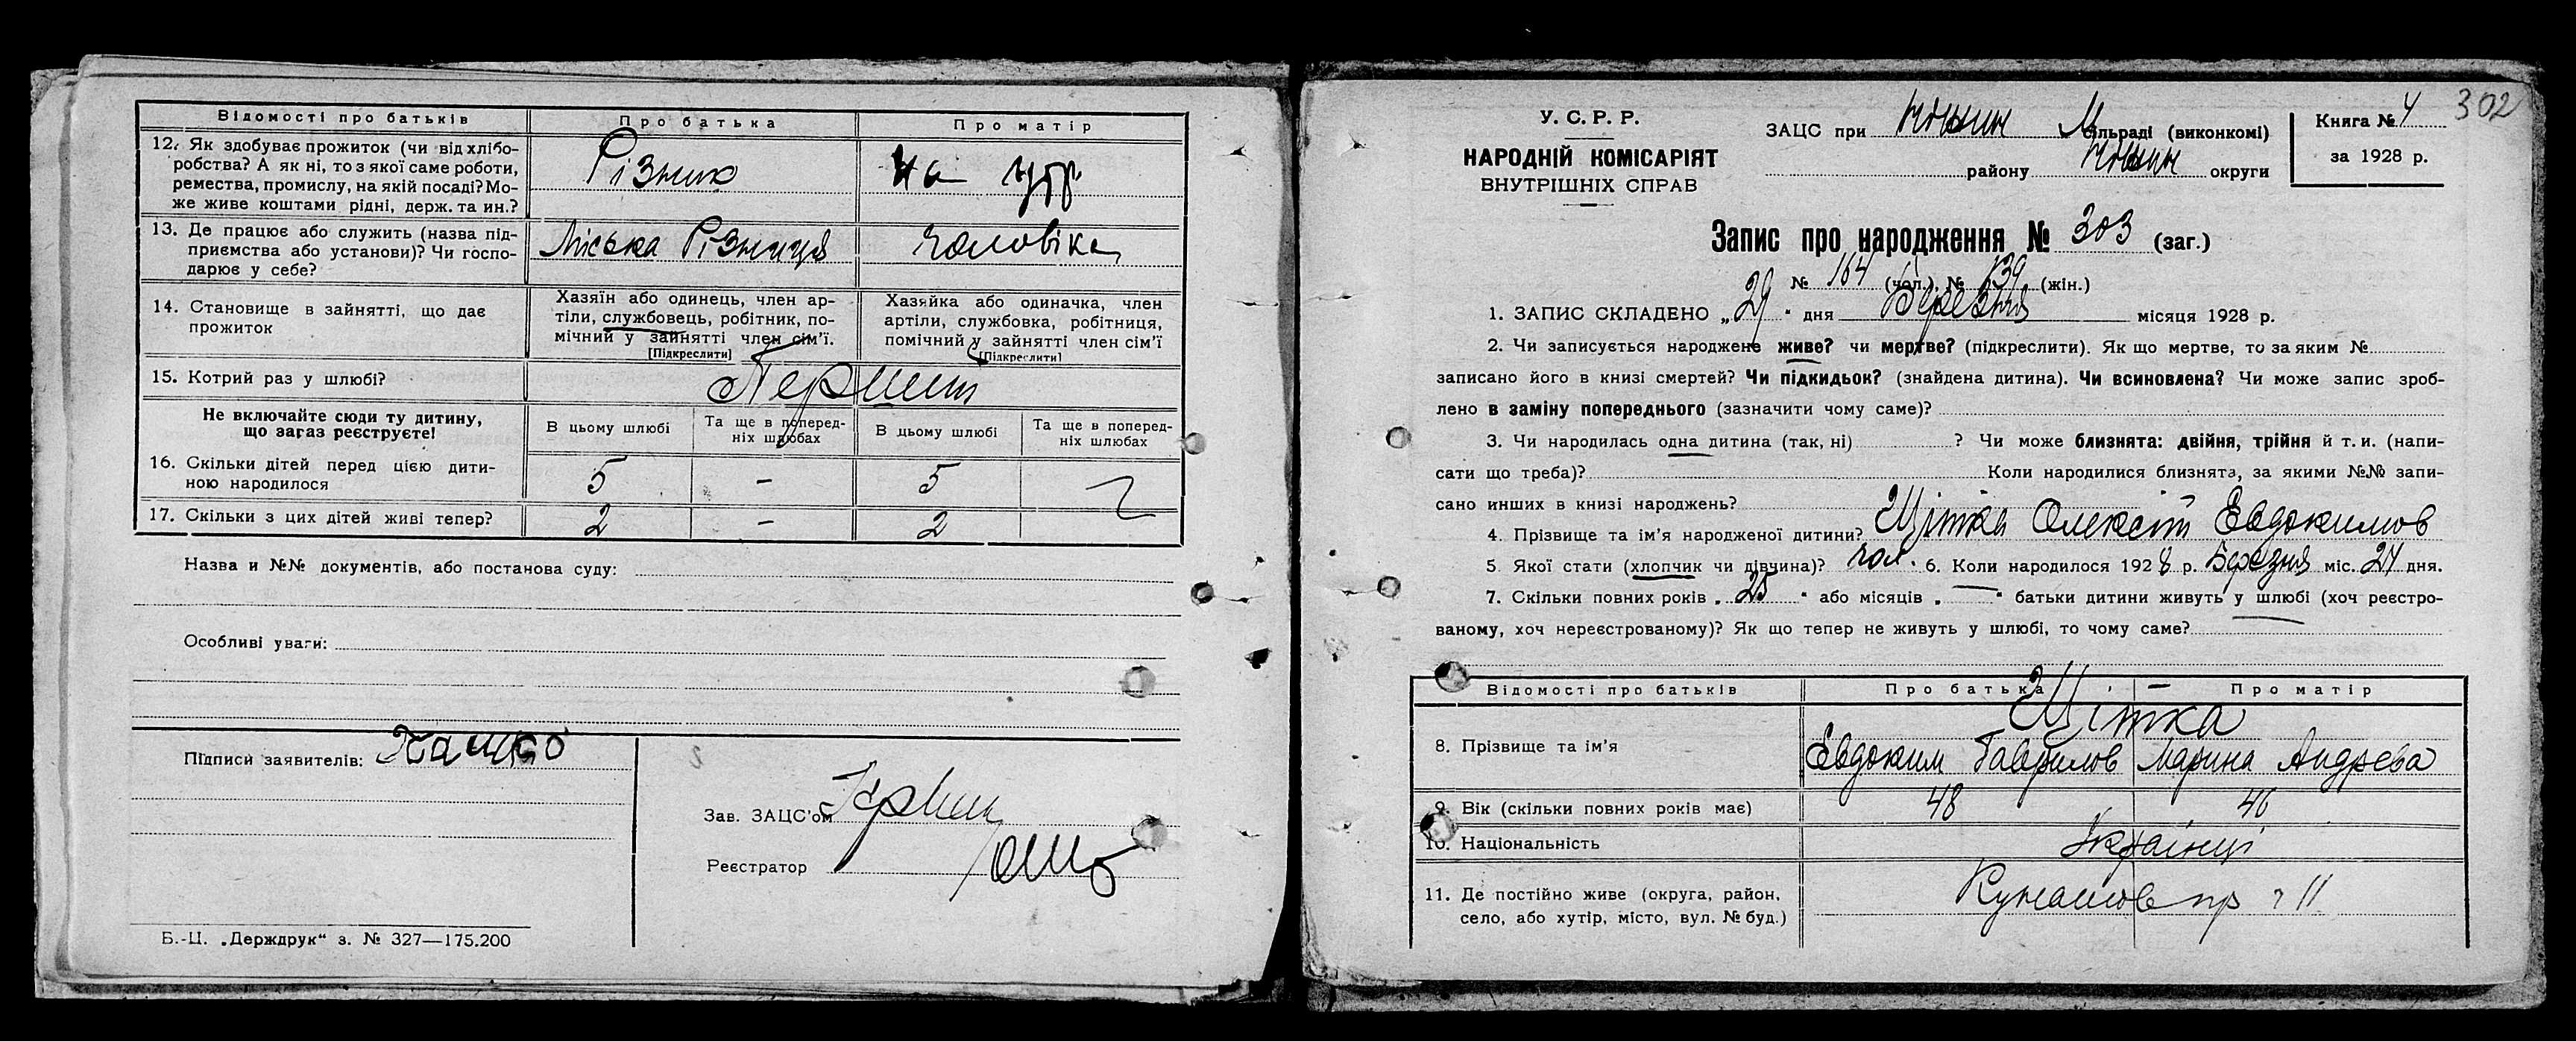 Відомості про батьків
Про батька
Про матір
12. Як здобуває прожиток (чи від хлібо-
робства? А як ні, то з якої саме роботи,
ремества, промислу, на якій посаді? Мо-
же живе коштами рідні, держ. та ин.?
Різник
на утр.
13. Де працює або служить (назва під-
приємства або установи)? Чи госпо-
дарює у себе?
Міська Різниця
чоловіка
14. Становище в зайнятті, що дає
прожиток
Хазяїн або одинець, член ар-
тіли, службовець, робітник, по-
мічний у зайнятті член сім'ї.
[Підкреслити]
Хазяйка або одиначка, член
артіли, службовка, робітниця,
помічний у зайнятті член сім'ї
[Підкреслити]
15. Котрий раз у шлюбі?
Перший
Не включайте сюди ту дитину,
що загаз реєструєте!
В цьому шлюбі
Та ще в поперед-
ніх шлюбах
В цьому шлюбі
Та ще в поперед-
ніх шлюбах
16. Скільки дітей перед цією дити-
ною народилося
5 – 5
17. Скільки з цих дітей живі тепер?
2 – 2
Назва и №№ документів, або постанова суду:
Особливі уваги:
Підписи заявителів:
Зав. ЗАЦС'ом
Реєстратор
Б.-Ц. „Держдрук“ з. № 327—175.200
302
У. С. Р. Р.
НАРОДНІЙ КОМІСАРІЯТ
ВНУТРІШНІХ СПРАВ
ЗАЦС при Ніжин М ільраді (виконкомі)
району Ніжин округи
Книга № 4
за 1928 р.
Запис про народження № 303 (заг.)
№ 164 (чол.), № 139 (жін.)
1. ЗАПИС СКЛАДЕНО „29“ дня Березня місяця 1928 р.
2. Чи записується народжене живе? чи мертве? (підкреслити). Як що мертве, то за яким №
записано його в книзі смертей? Чи підкидьок? (знайдена дитина). Чи всиновлена? Чи може запис зроб-
лено в заміну попереднього (зазначити чому саме)?
3. Чи народилась одна дитина (так, ні) ? Чи може близнята: двійня, трійня й т. и. (напи-
сати що треба)? Коли народилися близнята, за якими №№ запи-
сано инших в книзі народжень?
4. Прізвище та ім'я народженої дитини? Щітка Олексій Евдокимов
5. Якої стати (хлопчик чи дівчина)? чол. 6. Коли народилося 1928 р. Березня міс. 24 дня.
7. Скільки повних років „25“ або місяців „—“ батьки дитини живуть у шлюбі (хоч реєстро-
ваному, хоч нереєстрованому)? Як що тепер не живуть у шлюбі, то чому саме?
Відомості про батьків
Про батька
Про матір
8. Прізвище та ім'я
Щітка
Евдоким Гаврилов
Марина Андрєева
9. Вік (скільки повних років має)
48
46
10. Національність
Українці
11. Де постійно живе (округа, район,
село, або хутір, місто, вул. № буд.)
11